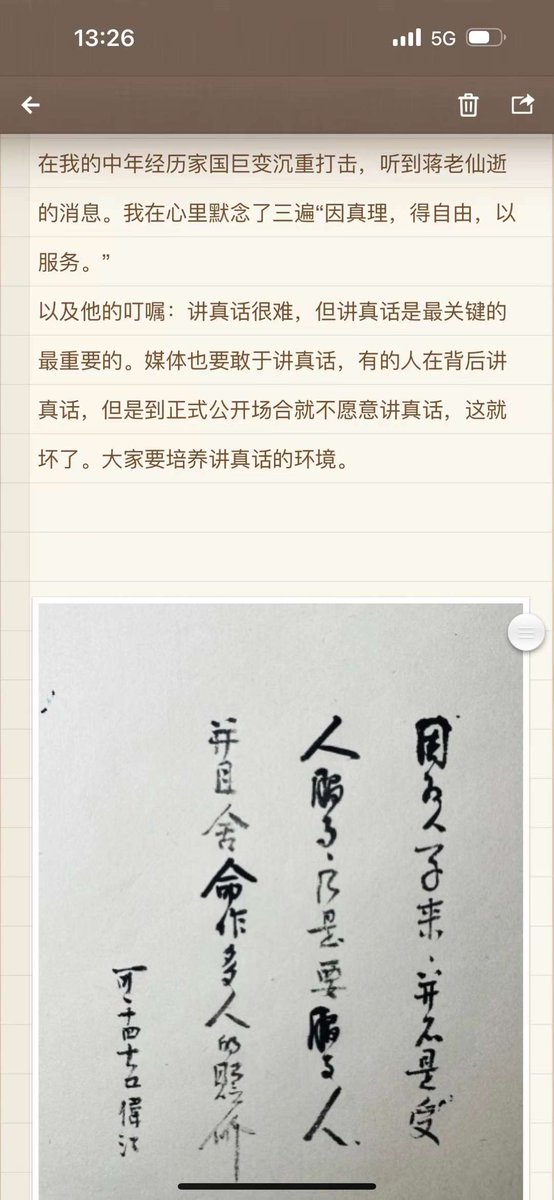 13:26
5G
在我的中年经历家国巨变沉重打击，听到蒋老仙逝
的消息。我在心里默念了三遍“因真理，得自由，以
服务。”
以及他的叮嘱：讲真话很难，但讲真话是最关键的
最重要的。媒体也要敢于讲真话，有的人在背后讲
真话，但是到正式公开场合就不愿意讲真话，这就
坏了。大家要培养讲真话的环境。
因为人子来、并不是受
人服事、乃是要服事人、
并且舍命作多人的赎价
可 十四 偉